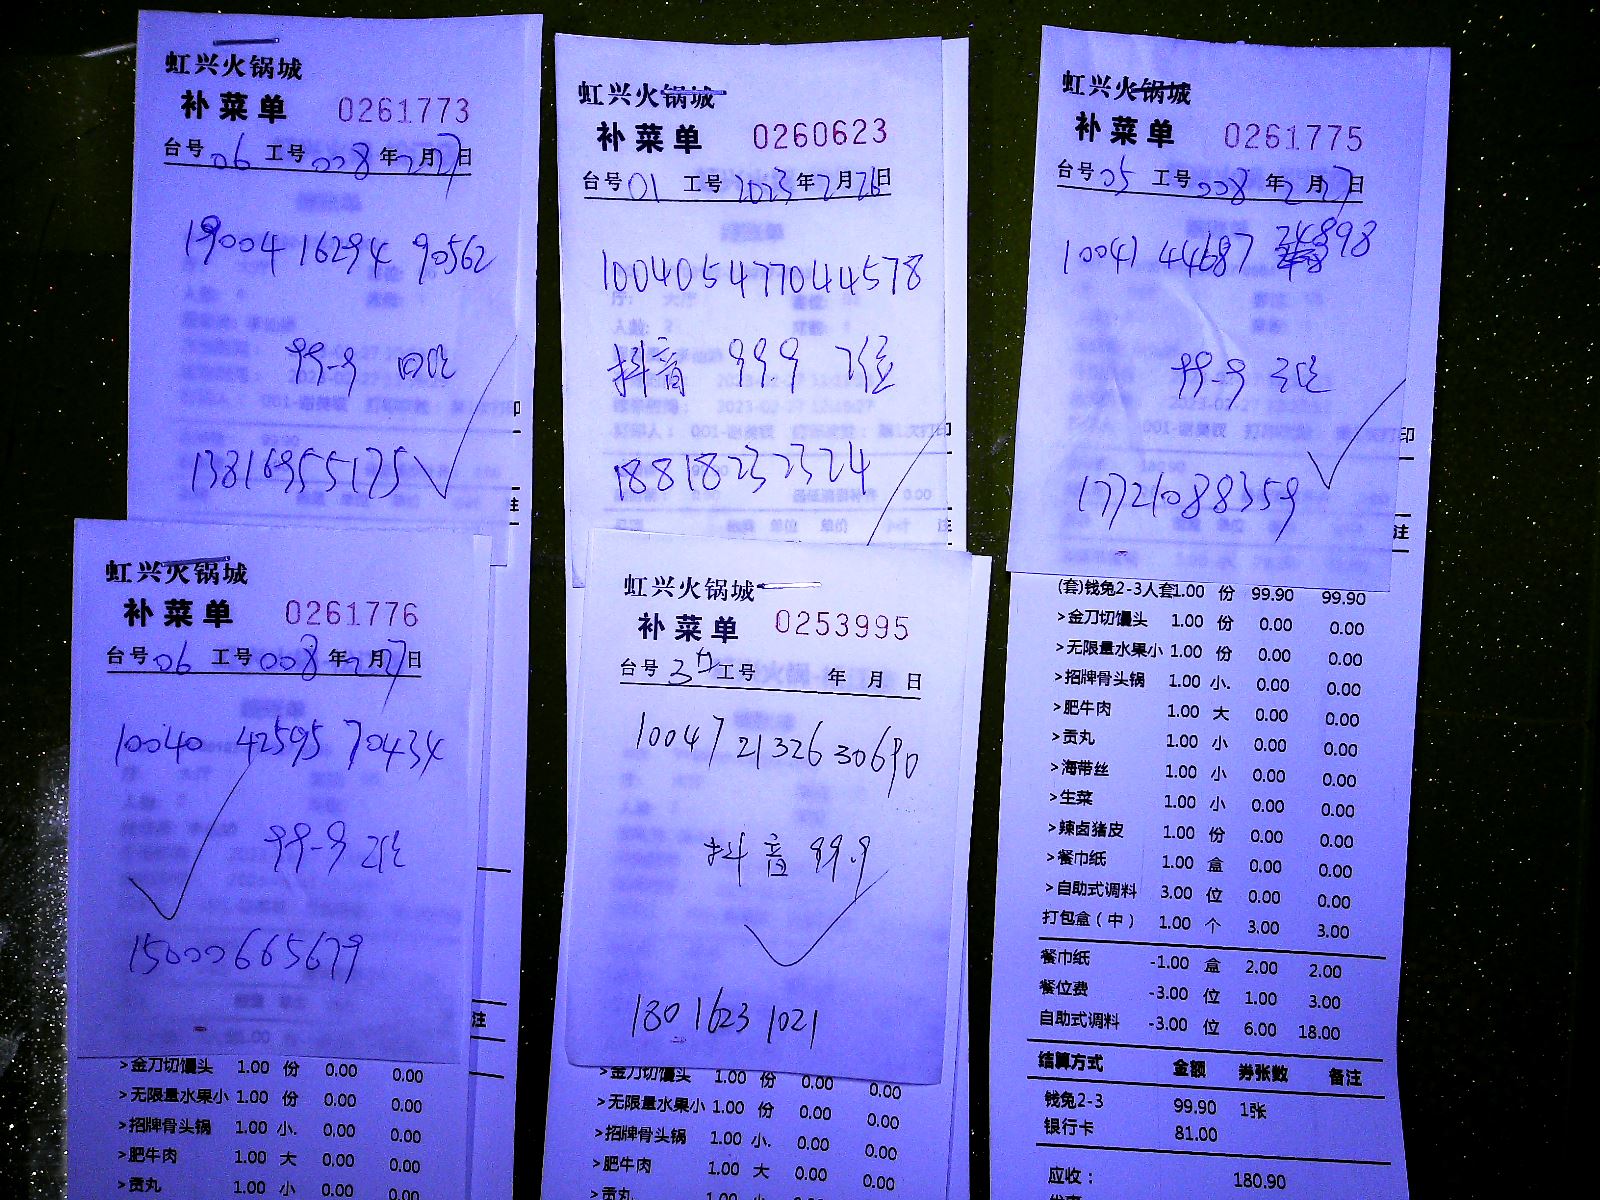 虹兴火锅城
补菜单 0261773
台号 06 工号 008 年 2 月 27 日
19004 16294 90562
99-9 四位
13816955175
虹兴火锅城
补菜单 0260623
台号 01 工号 2023 年 2 月 26 日
1004054770 44578
抖音 99.9 2位
18818232324
印
注
虹兴火锅城
补菜单 0261775
台号 05 工号 008 年 2 月 27 日
10041 44687 34898
99-9 三位
17721088359
印
注
(套)钱兔2-3人套1.00 份 99.90 99.90
>金刀切馒头 1.00 份 0.00 0.00
>无限量水果小 1.00 份 0.00 0.00
>招牌骨头锅 1.00 小. 0.00 0.00
>肥牛肉 1.00 大 0.00 0.00
>贡丸 1.00 小 0.00 0.00
>海带丝 1.00 小 0.00 0.00
>生菜 1.00 小 0.00 0.00
>辣卤猪皮 1.00 份 0.00 0.00
>餐巾纸 1.00 盒 0.00 0.00
>自助式调料 3.00 位 0.00 0.00
打包盒（中） 1.00 个 3.00 3.00
餐巾纸 -1.00 盒 2.00 2.00
餐位费 -3.00 位 1.00 3.00
自助式调料 -3.00 位 6.00 18.00
结算方式 金额 券张数 备注
钱兔2-3 99.90 1张
银行卡 81.00
应收： 180.90
虹兴火锅城
补菜单 0261776
台号 06 工号 008 年 2 月 27 日
10040 42595 70434
99-9 2位
15000665679
注
>金刀切馒头 1.00 份 0.00 0.00
>无限量水果小 1.00 份 0.00 0.00
>招牌骨头锅 1.00 小. 0.00 0.00
>肥牛肉 1.00 大 0.00 0.00
>贡丸 1.00 小 0.00 0.00
虹兴火锅城
补菜单 0253995
台号 3台 工号 年 月 日
10047 21326 30690
抖音 99.9
180 1623 1021
>金刀切馒头 1.00 份 0.00 0.00
>无限量水果小 1.00 份 0.00 0.00
>招牌骨头锅 1.00 小. 0.00 0.00
>肥牛肉 1.00 大 0.00 0.00
>贡丸 1.00 小 0.00 0.00